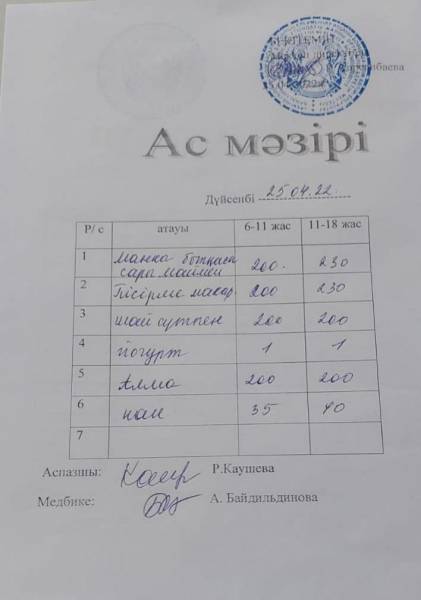 БЕКІТЕМІН
Ас мәзірі
Дүйсенбі 25.04.22.
Р/ с атауы 6-11 жас 11-18 жас
1 манка ботқасы 200. 230
сары маймен
2 Пісірме макар. 200 230
3 шай сүтпен 200 200
4 йогурт 1 1
5 Алма 200 200
6 нан 35 70
7
Аспазшы: Р.Каушева
Медбике: А. Байдильдинова